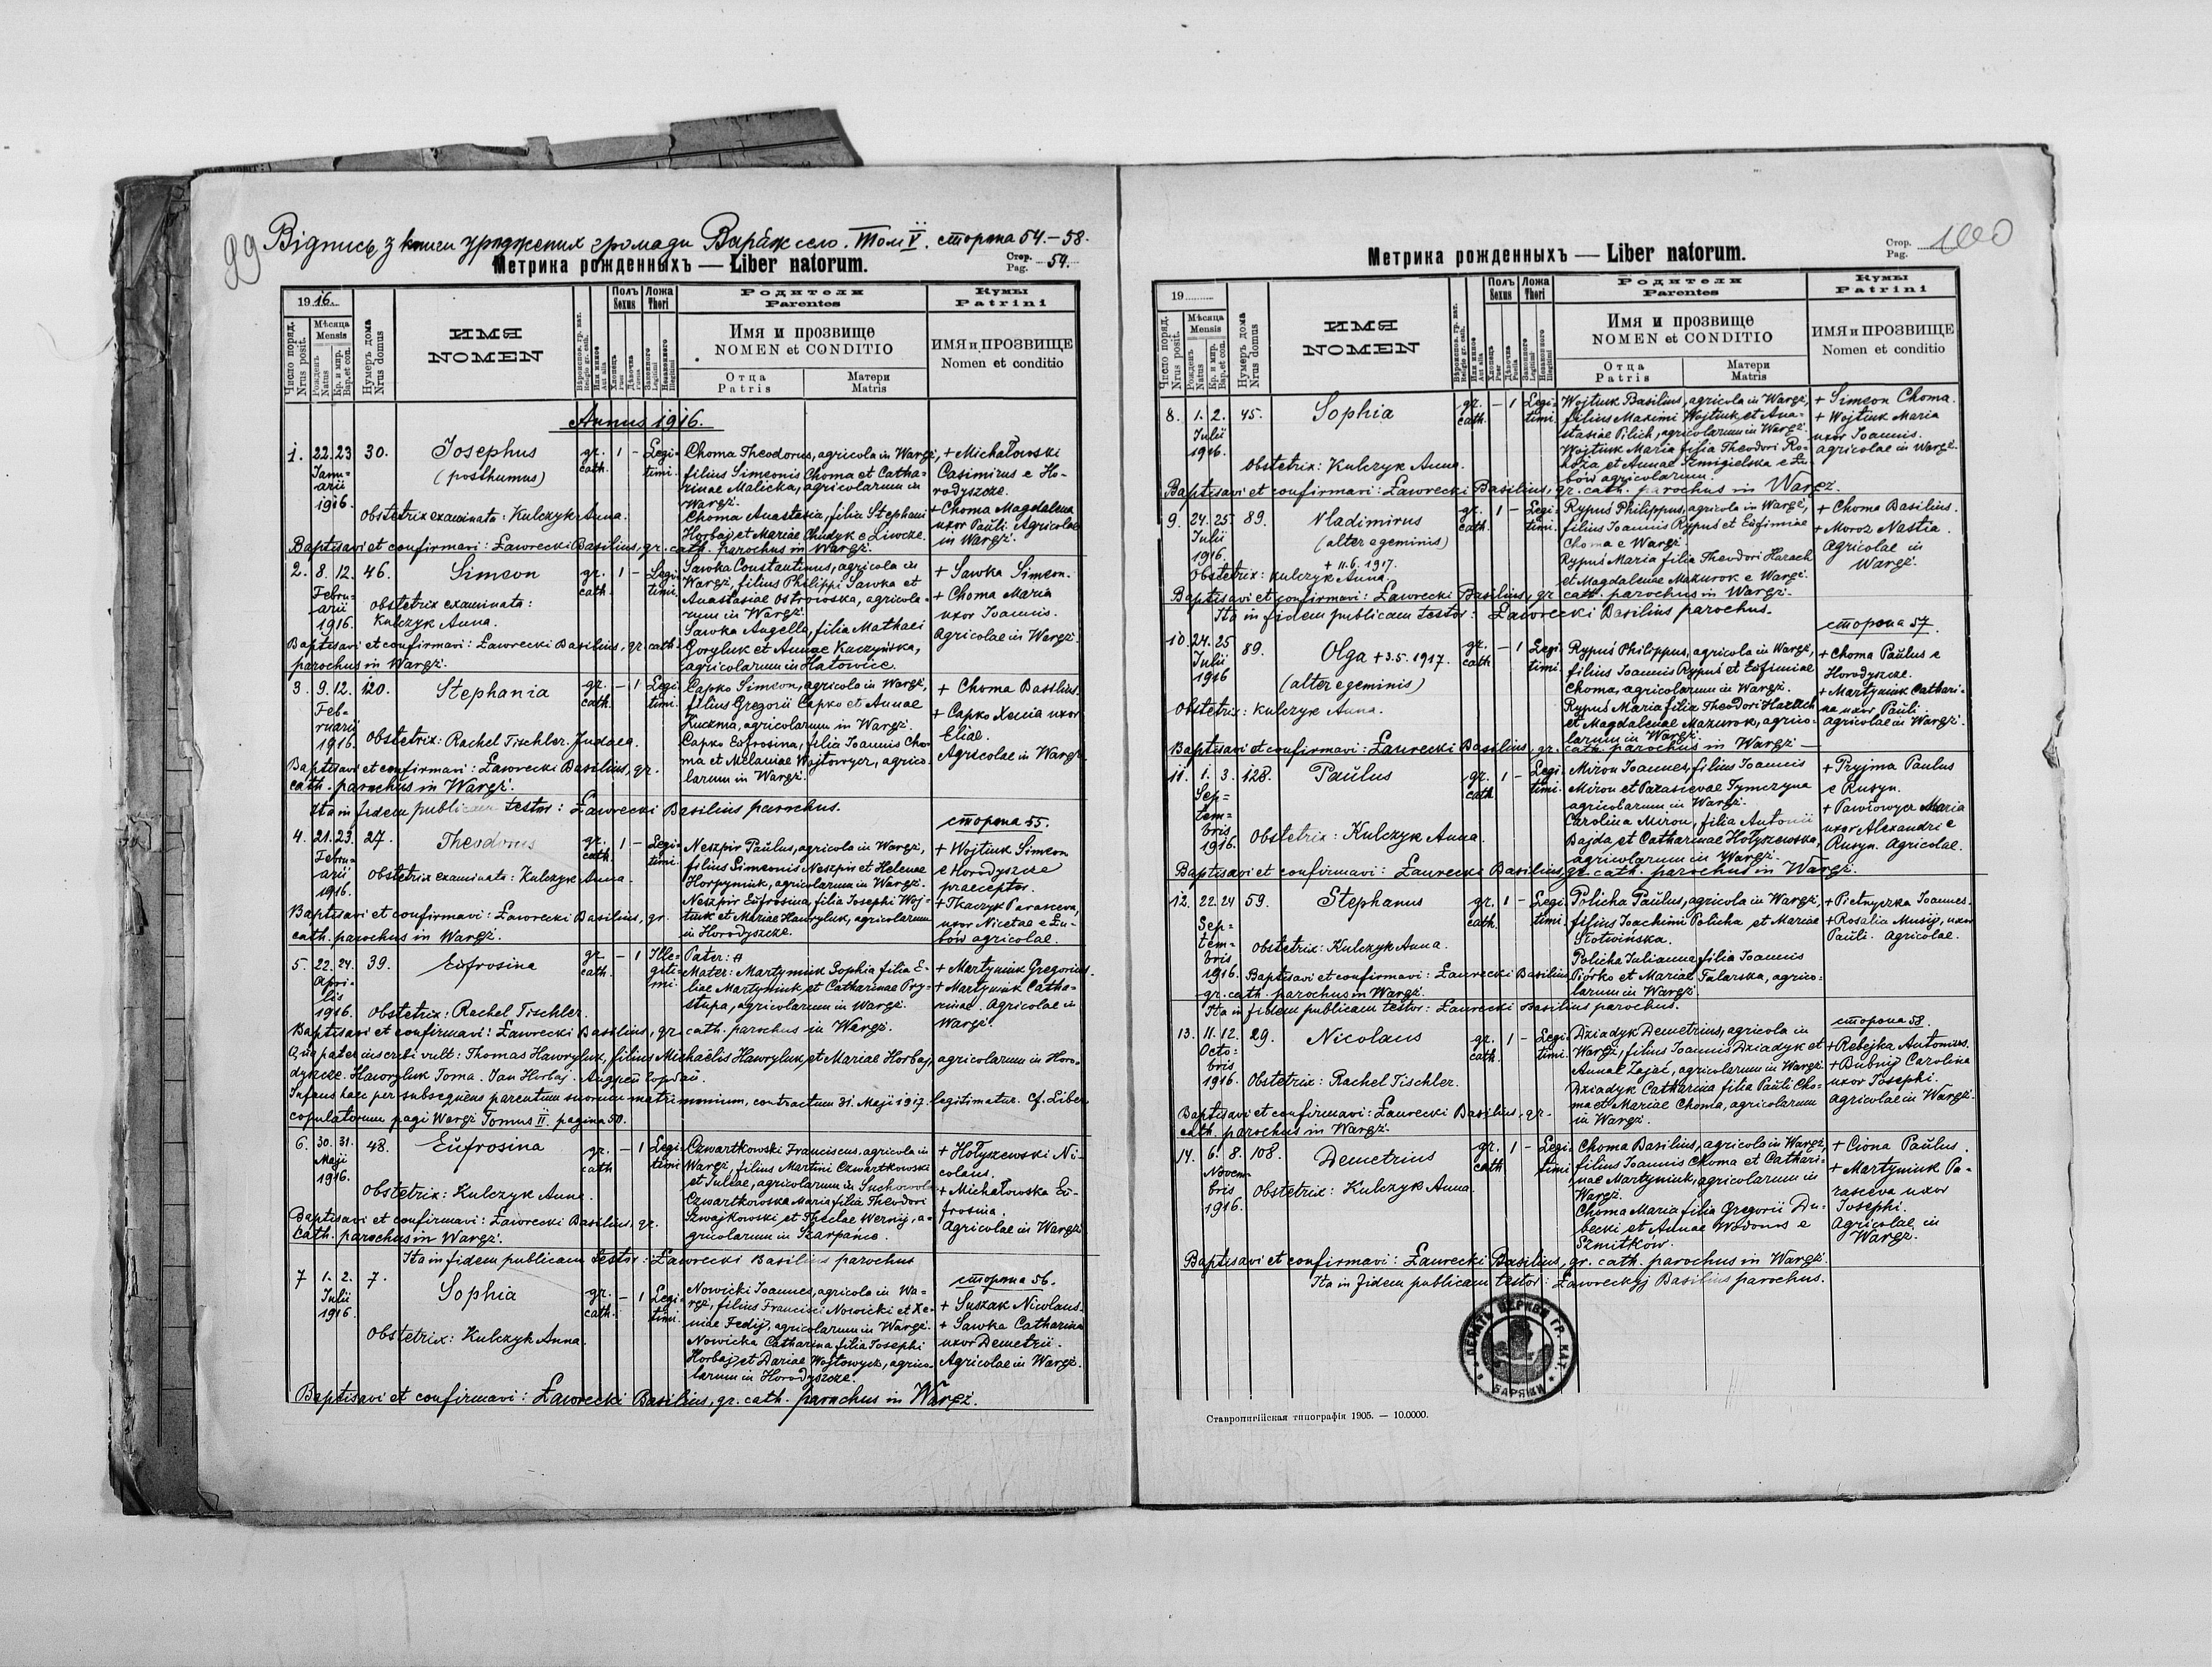 99
Відпись з книги уроджених громади Варяж село. Том V. сторона 54.–58.
Метрика рожденныхъ — Liber natorum.
Стор. Pag. 54.
1916.
Число поряд. Nrus posit.
Мѣсяца Mensis
Рожденъ Natus
Кр. и мир. Bap. et con.
Нумеръ дома Nrus domus
ИМЯ
NOMEN
Вѣроиспов. гр. кат. Religio gr. cath.
Или инякое Aut alia
Полъ Sexus
Хлопець Puer
Дѣвочка Puella
Ложа Thori
Законного Legitimi
Незаконного Illegitimi
Родители
Parentes
Имя и прозвище
NOMEN et CONDITIO
Отца Patris
Матери Matris
Кумы
Patrini
ИМЯ и ПРОЗВИЩЕ
Nomen et conditio
Annus 1916.
1. 22. 23 Januarii 1916. 30. Josephus (posthumus) gr. cath. 1 – Legitimi.
Choma Theodorus, agricola in Waręż,
filius Simeonis Choma et Catha-
rinae Malicka, agricolarum in
Waręż.
Choma Anastasia, filia Stephani
Horbaj et Mariae Chudyk e Liwcze.
+ Michałowski
Casimirus e Ho-
rodyszcze.
+ Choma Magdalena
uxor Pauli Agricolae
in Waręż.
Obstetrix examinata: Kulczyk Anna.
Baptisavi et confirmavi: Ławrecki Basilius, gr. cath. parochus in Waręż.
2. 8. 12. Februarii 1916. 46. Simeon gr. cath. 1 – Legitimi.
Sawka Constantinus, agricola in
Waręż, filius Philippi Sawka et
Anastasiae Ostrowska, agricola-
rum in Waręż.
Sawka Angella, filia Mathaei
Goryluk et Annae Kaczyńska,
agricolarum in Hatowice.
+ Sawka Simeon.
+ Choma Maria
uxor Joannis.
Agricolae in Waręż.
Obstetrix examinata:
Kulczyk Anna.
Baptisavi et confirmavi: Ławrecki Basilius, gr. cath.
parochus in Waręż.
3. 9. 12. Februarii 1916. 120. Stephania gr. cath. – 1 Legitimi.
Capko Simeon, agricola in Waręż,
filius Gregorii Capko et Annae
Kuzma, agricolarum in Waręż.
Capko Eufrosina, filia Joannis Cho-
ma et Melaniae Wojtowycz, agrico-
larum in Waręż.
+ Choma Basilius.
+ Capko Xenia uxor
Eliae.
Agricolae in Waręż.
Obstetrix: Rachel Tischler. Judaea.
Baptisavi et confirmavi: Ławrecki Basilius, gr.
cath. parochus in Waręż.
Ita in fidem publicam testor: Ławrecki Basilius parochus.
сторона 55.
4. 21. 23. Februarii 1916. 27. Theodorus gr. cath. 1 – Legitimi.
Neszpir Paulus, agricola in Waręż,
filius Simeonis Neszpir et Helenae
Horpyniuk, agricolarum in Waręż.
Neszpir Eufrosina, filia Josephi Woj-
tiuk et Mariae Hawryluk, agricolarum
in Horodyszcze.
+ Wojtiuk Simeon
e Horodyszcze
praeceptor.
+ Tkaczyk Parasceva,
uxor Nicetae e Łu-
bów agricolae.
Obstetrix examinata: Kulczyk Anna.
Baptisavi et confirmavi: Ławrecki Basilius, gr.
cath. parochus in Waręż.
5. 22. 24. Aprilis 1916. 39. Eufrosina gr. cath. – 1 Illegitimi.
Pater: #
Mater: Martyniuk Sophia filia E-
liae Martyniuk et Catharinae Pry-
stupa, agricolarum in Waręż.
+ Martyniuk Gregorius.
+ Martyniuk Catha-
rinae. Agricolae in
Waręż.
Obstetrix: Rachel Tischler.
Baptisavi et confirmavi: Ławrecki Basilius, gr. cath. parochus in Waręż.
Qua pater inscribi vult: Thomas Hawryluk, filius Michaëlis Hawryluk et Mariae Horbaj, agricolarum in Horo-
dyszcze. Hawryluk Toma. Jan Horbaj. Андрей Горбай.
Infans haec per subsequens parentum suorum matrimonium, contractum 31. Maji 1917. legitimatur. Cf. Liber
copulatorum pagi Waręż Tomus II. pagina 50.
6. 30. 31. Maji 1916. 48. Eufrosina gr. cath – 1 Legitimi
Czwartkowski Franciscus, agricola in
Waręż, filius Martini Czwartkowski
et Juliae, agricolarum in Suchowola
Czwartkowska Maria filia Theodori
Szwajkowski et Theclae Wernij, a-
gricolarum in Szarpańce.
+ Hołyszewski Ni-
colaus.
+ Michałowska Eu-
frosina.
Agricolae in Waręż
Obstetrix: Kulczyk Anna.
Baptisavi et confirmavi: Ławrecki Basilius, gr.
cath. parochus in Waręż.
Ita in fidem publicam testor: Ławrecki Basilius parochus
сторона 56.
7 1. 2. Julii 1916. 7. Sophia gr. cath. – 1 Legitimi.
Nowicki Joannes, agricola in Wa-
ręż, filius Francisci Nowicki et Xe-
niae Fedij, agricolarum in Waręż.
Nowicka Catharina filia Josephi
Horbaj et Dariae Wojtowycz, agrico-
larum in Horodyszcze.
+ Suszak Nicolaus.
+ Sawka Catharina
uxor Demetrii.
Agricolae in Waręż.
Obstetrix: Kulczyk Anna.
Baptisavi et confirmavi: Ławrecki Basilius, gr. cath. parochus in Waręż.
Метрика рожденныхъ — Liber natorum.
Стор. Pag. 100
19
Число поряд. Nrus posit.
Мѣсяца Mensis
Рожденъ Natus
Кр. и мир. Bap. et con.
Нумеръ дома Nrus domus
ИМЯ
NOMEN
Вѣроиспов. гр. кат. Religio gr. cath.
Или инякое Aut alia
Полъ Sexus
Хлопець Puer
Дѣвочка Puella
Ложа Thori
Законного Legitimi
Незаконного Illegitimi
Родители
Parentes
Имя и прозвище
NOMEN et CONDITIO
Отца Patris
Матери Matris
Кумы
Patrini
ИМЯ и ПРОЗВИЩЕ
Nomen et conditio
8. 1. 2. Julii 1916. 45. Sophia gr. cath. – 1 Legitimi.
Wojtiuk Basilius, agricola in Waręż,
filius Maximi Wojtiuk et Ana-
stasiae Pilich, agricolarum in Waręż.
Wojtiuk Maria filia Theodori Ro-
hoża et Annae Szmigielska e Łu-
bów agricolarum.
+ Simeon Choma.
+ Wojtiuk Maria
uxor Joannis.
agricolae in Waręż.
Obstetrix: Kulczyk Anna.
Baptisavi et confirmavi: Ławrecki Basilius, gr. cath. parochus in Waręż.
9. 24. 25. Julii 1916. 89. Vladimirus (alter e geminis) + 11.6.1917. gr. cath. 1 – Legitimi.
Rypuś Philippus, agricola in Waręż,
filius Joannis Rypuś et Eufimiae
Choma e Waręż.
Rypuś Maria filia Theodori Harach
et Magdalenae Mazurok e Waręż.
+ Choma Basilius.
+ Moroz Nastia.
Agricolae in
Waręż.
Obstetrix: Kulczyk Anna.
Baptisavi et confirmavi: Ławrecki Basilius, gr. cath. parochus in Waręż.
Ita in fidem publicam testor: Ławrecki Basilius parochus.
сторона 57.
10. 24. 25 Julii 1916 89. Olga + 3.5.1917. (alter e geminis) gr. cath – 1 Legitimi.
Rypuś Philippus, agricola in Waręż,
filius Joannis Rypuś et Eufimiae
Choma, agricolarum in Waręż.
Rypuś Maria filia Theodori Harach
et Magdalenae Mazurok, agrico-
larum in Waręż.
+ Choma Paulus e
Horodyszcze.
+ Martyniuk Cathari-
na uxor Pauli.
agricolae in Waręż.
Obstetrix: Kulczyk Anna.
Baptisavi et confirmavi: Ławrecki Basilius, gr. cath. parochus in Waręż –
11. 1. 3. Septembris 1916. 128. Paulus gr. cath 1 – Legitimi.
Miron Joannes, filius Joannis
Miron et Parasievae Tymczyna
agricolarum in Waręż.
Carolina Miron, filia Antonii
Bajda et Catharinae Hołyszewska,
agricolarum in Waręż.
+ Pryjma Paulus
e Rusyn.
+ Pawłowycz Maria
uxor Alexandri e
Rusyn. Agricolae.
Obstetrix: Kulczyk Anna.
Baptisavi et confirmavi: Ławrecki Basilius, gr. cath. parochus in Waręż.
12. 22. 24 Septembris 1916. 59. Stephanus gr. cath. 1 – Legitimi.
Policha Paulus, agricola in Waręż,
filius Joachimi Policha et Mariae
Słotwińska.
Policha Julianna, filia Joannis
Piórko et Mariae Talarska, agrico-
larum in Waręż.
+ Pietnyczka Joannes.
+ Rosalia Musij, uxor
Pauli. Agricolae.
Obstetrix: Kulczyk Anna.
Baptisavi et confirmavi: Ławrecki Basilius
gr. cath. parochus in Waręż.
Ita in fidem publicam testor: Ławrecki Basilius parochus.
сторона 58.
13. 11. 12. Octobris 1916. 29. Nicolaus gr. cath. 1 – Legitimi.
Dziadyk Demetrius, agricola in
Waręż, filius Joannis Dziadyk et
Annae Zając, agricolarum in Waręż.
Dziadyk Catharina filia Pauli Cho-
ma et Mariae Choma, agricolarum
in Waręż.
+ Rebejka Antonius.
+ Bubnij Carolina
uxor Josephi.
agricolae in Waręż.
Obstetrix: Rachel Tischler.
Baptisavi et confirmavi: Ławrecki Basilius, gr.
cath. parochus in Waręż.
14. 6. 8. Novembris 1916. 108. Demetrius gr. cath 1 – Legitimi
Choma Basilius, agricola in Waręż,
filius Joannis Choma et Cathari-
nae Martyniuk, agricolarum in
Waręż.
Choma Maria filia Gregorii Du-
becki et Annae Wdowos e
Szmitków.
+ Ciona Paulus.
+ Martyniuk Pa-
rasceva uxor
Josephi.
Agricolae in
Waręż.
Obstetrix: Kulczyk Anna.
Baptisavi et confirmavi: Ławrecki Basilius, gr. cath. parochus in Waręż.
Ita in fidem publicam testor: Ławreckyj Basilius parochus.
ПЕЧАТЬ ЦЕРКВИ ГР. КАТ.
ВАРЯЖИ
Ставропигійская типографія 1905. — 10.0000.